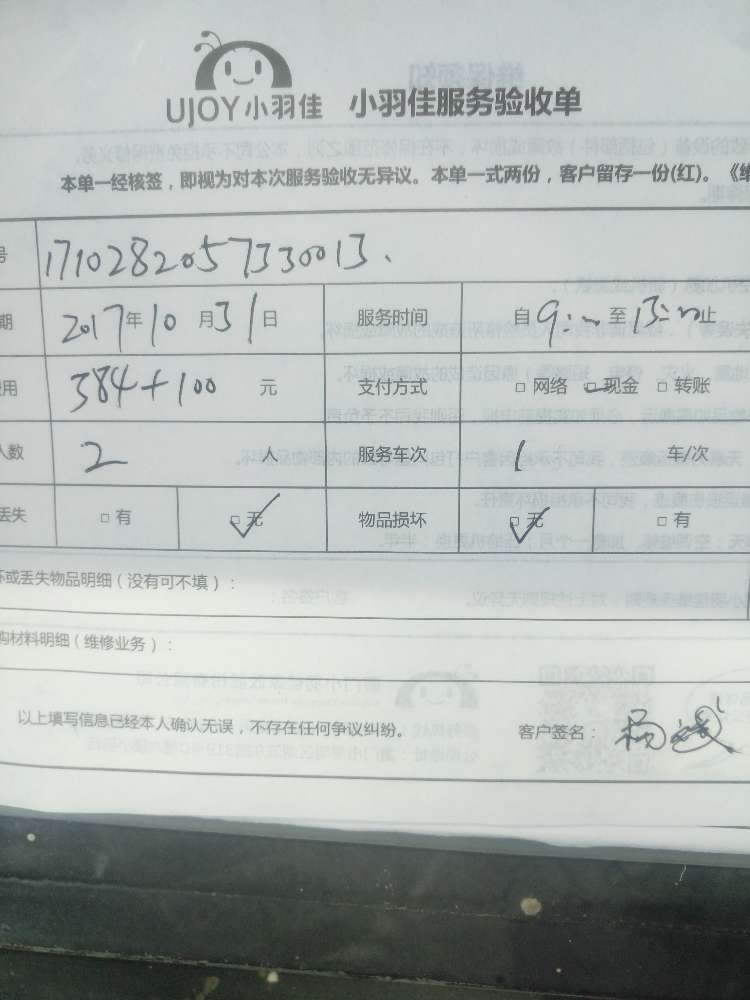 UJOY小羽佳 小羽佳服务验收单
本单一经核签，即视为对本次服务验收无异议。本单一式两份，客户留存一份(红)。《维
号 1710282057330013.
期 2017年10月31日 服务时间 自9:00至13:00止
费用 384+100 元 支付方式 □网络 □现金 □转账
人数 2 人 服务车次 1 车/次
丢失 □有 □无 物品损坏 □无 □有
坏或丢失物品明细（没有可不填）：
购材料明细（维修业务）：
以上填写信息已经本人确认无误，不存在任何争议纠纷。 客户签名：杨